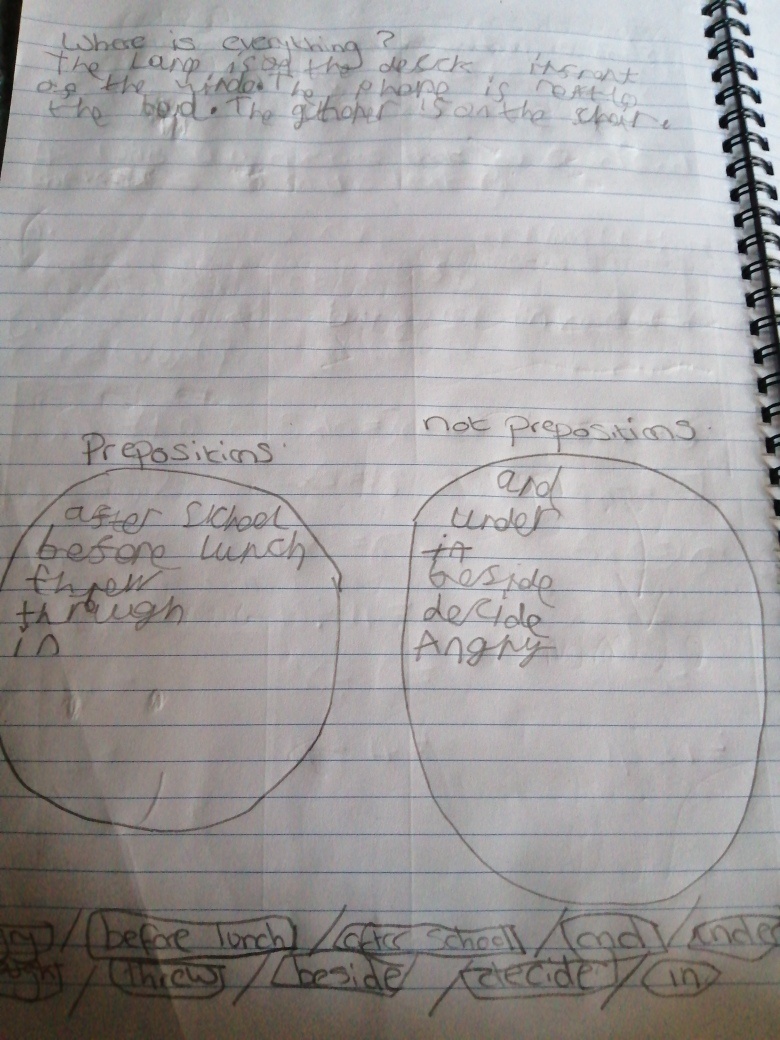 Where is everything?
The Lamp is on the desck infront
of the window. The phone is next to
the bed. The is on the chair.
Prepositions.
not prepositions.
after school
before lunch
threw
through
in
and
under
in
beside
decide
Angry
/ before lunch / after school / and / under
threw / beside / decide / in